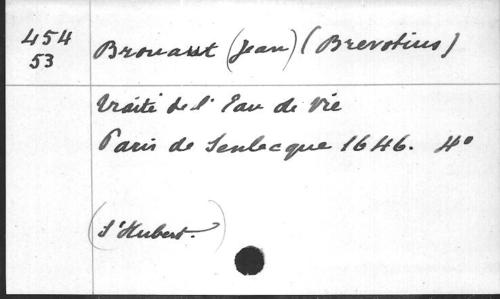 454
53
Brouaut (Jean) (Brevotius)
Traité de l' Eau de Vie
Paris de Senlecque 1646. 4°
(S'Hubert.)